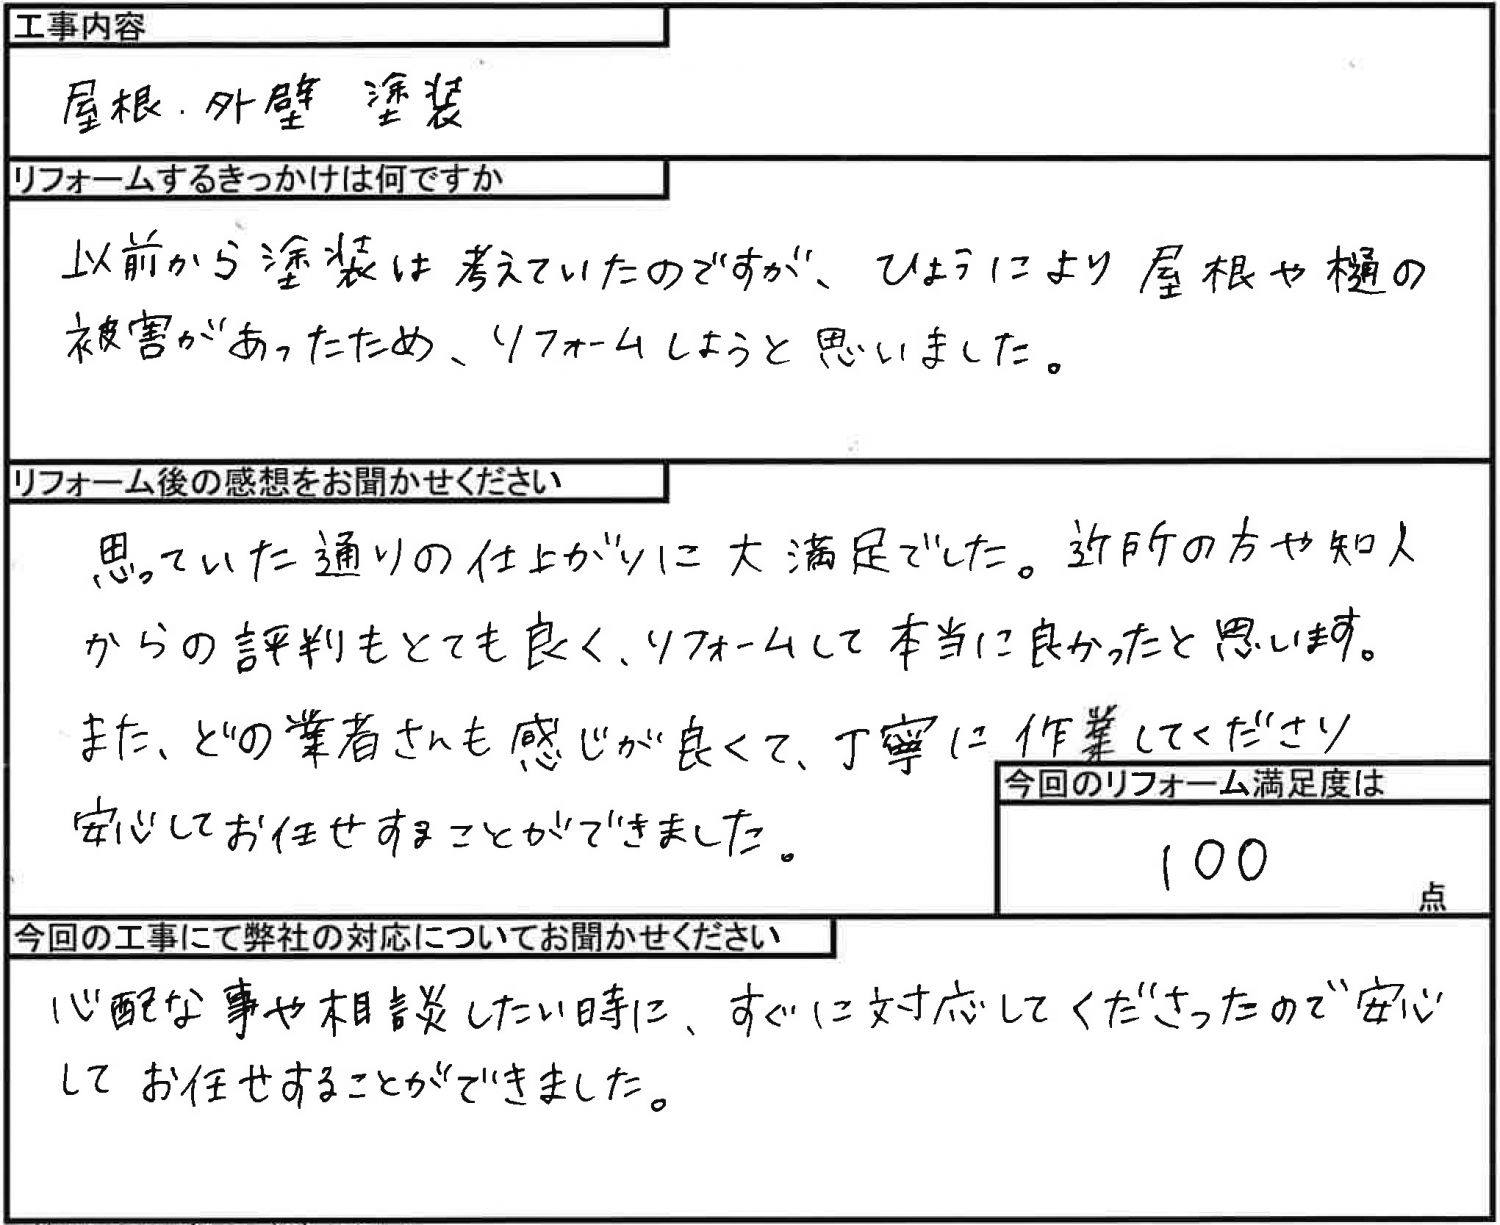 工事内容
屋根・外壁 塗装
リフォームするきっかけは何ですか
以前から塗装は考えていたのですが、ひょうにより屋根や樋の
被害があったため、リフォームしようと思いました。
リフォーム後の感想をお聞かせください
思っていた通りの仕上がりに大満足でした。近所の方や知人
からの評判もとても良く、リフォームして本当に良かったと思います。
また、どの業者さんも感じが良くて、丁寧に作業してくださり
安心してお任せすることができました。
今回のリフォーム満足度は
100
点
今回の工事にて弊社の対応についてお聞かせください
心配な事や相談したい時に、すぐに対応してくださったので安心
してお任せすることができました。